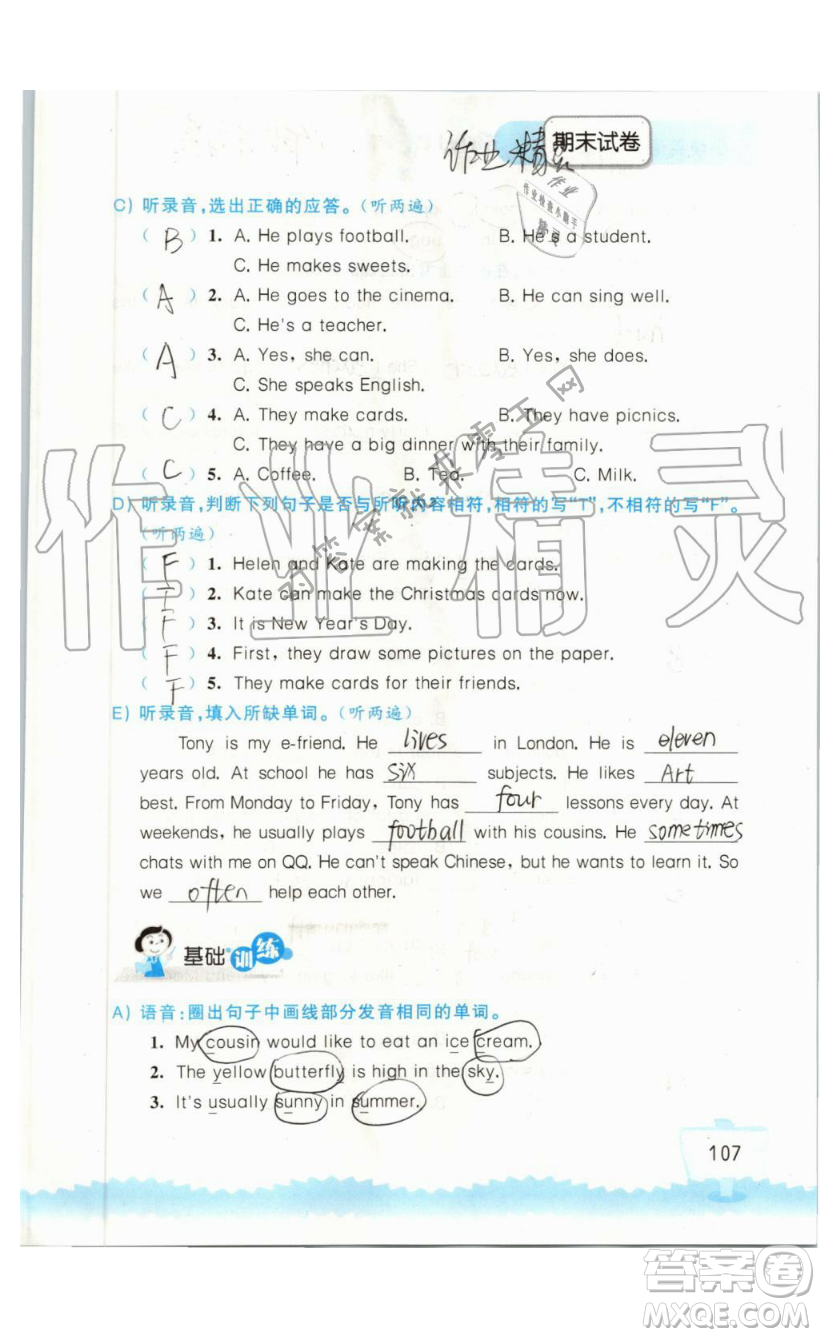 作业精灵
期末试卷
作业
作业检查小助手
精灵
C) 听录音,选出正确的应答。(听两遍)
( B ) 1. A. He plays football. B. He's a student.
C. He makes sweets.
( A ) 2. A. He goes to the cinema. B. He can sing well.
C. He's a teacher.
( A ) 3. A. Yes, she can. B. Yes, she does.
C. She speaks English.
( C ) 4. A. They make cards. B. They have picnics.
C. They have a big dinner with their family.
( C ) 5. A. Coffee. B. Tea. C. Milk.
D) 听录音,判断下列句子是否与所听内容相符,相符的写"T",不相符的写"F"。
(听两遍)
( F ) 1. Helen and Kate are making the cards.
( T ) 2. Kate can make the Christmas cards now.
( F ) 3. It is New Year's Day.
( F ) 4. First, they draw some pictures on the paper.
( F ) 5. They make cards for their friends.
作业精灵
E) 听录音,填入所缺单词。(听两遍)
Tony is my e-friend. He lives in London. He is eleven
years old. At school he has six subjects. He likes Art
best. From Monday to Friday, Tony has four lessons every day. At
weekends, he usually plays football with his cousins. He sometimes
chats with me on QQ. He can't speak Chinese, but he wants to learn it. So
we often help each other.
基础训练
A) 语音:圈出句子中画线部分发音相同的单词。
1. My cousin would like to eat an ice cream.
2. The yellow butterfly is high in the sky.
3. It's usually sunny in summer.
107
答案卷
MXQE.COM